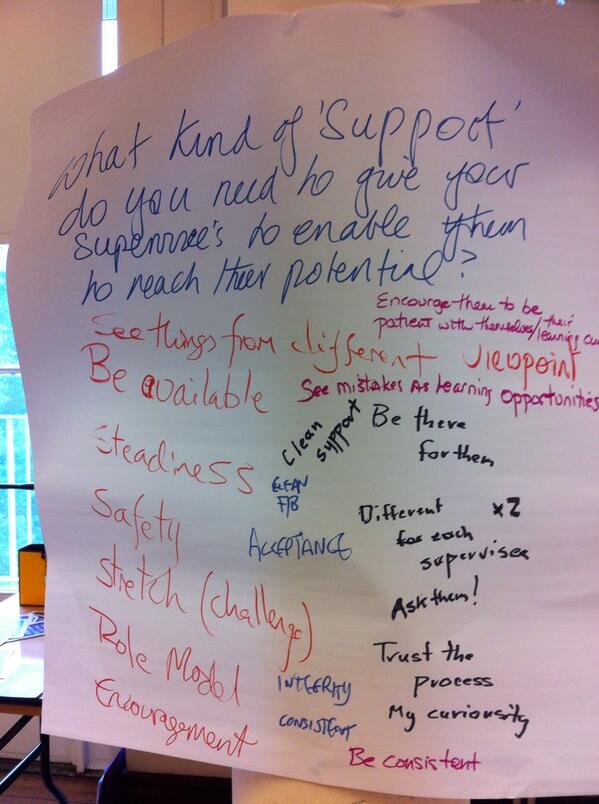 What kind of 'Support'
do you need to give your
Supervisee's to enable them
to reach their potential?
Encourge them to be
patient with themselves/their
learning cu
See things from different viewpoint
Be available
See mistakes As learning opportunities
Clean
support
Be there
for them
Steadiness
CLEAN
F/B
Safety
ACCEPTANCE
Different x2
for each
supervisee
Stretch (challenge)
Ask them!
Role Model
Trust the
process
INTEGRITY
My curiousity
CONSISTENT
Encouragement
Be consistent